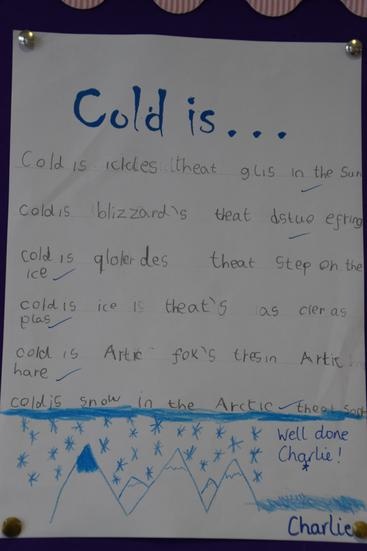 Cold is...
Cold is ickles theat glis in the Sun
cold is blizzard's theat dstuo efring
cold is qloler des theat Step on the
ice
cold is ice is theat's as cler as
glas
cold is Artic fox's tresin Artic
hare
cold is snow in the Arctic theat
Well done
Charlie!
Charlie